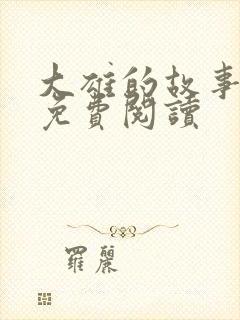 大雄的故事
免費閱讀
羅麗